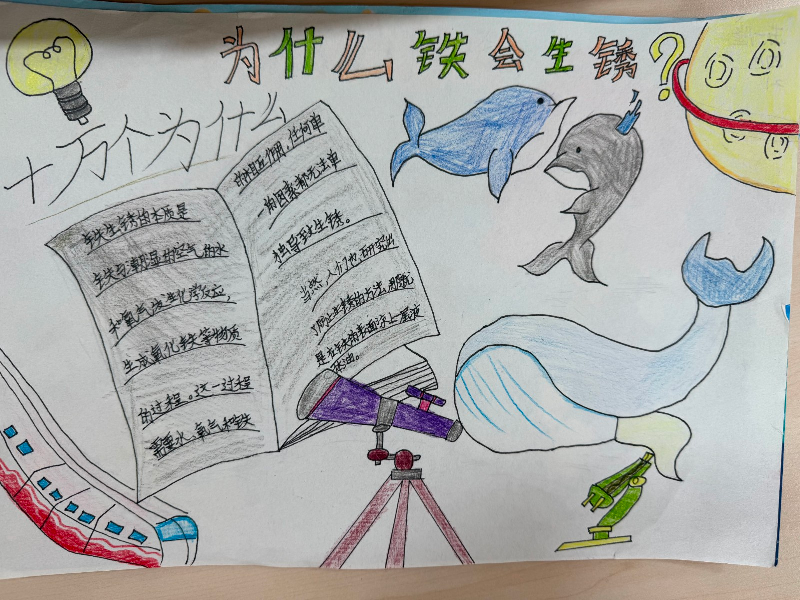 为什么铁会生锈?
十万个为什么
铁生锈的本质是
铁与潮湿的空气的水
和氧气发生化学反应,
生成氧化铁等物质
的过程。这一过程
需要水、氧气和铁
的相互作用,任何单
一的因素都无法单
独导致生锈。
当然,人们也研究出
了防止生锈的方法,
是在铁的表面涂上一层液
体油。